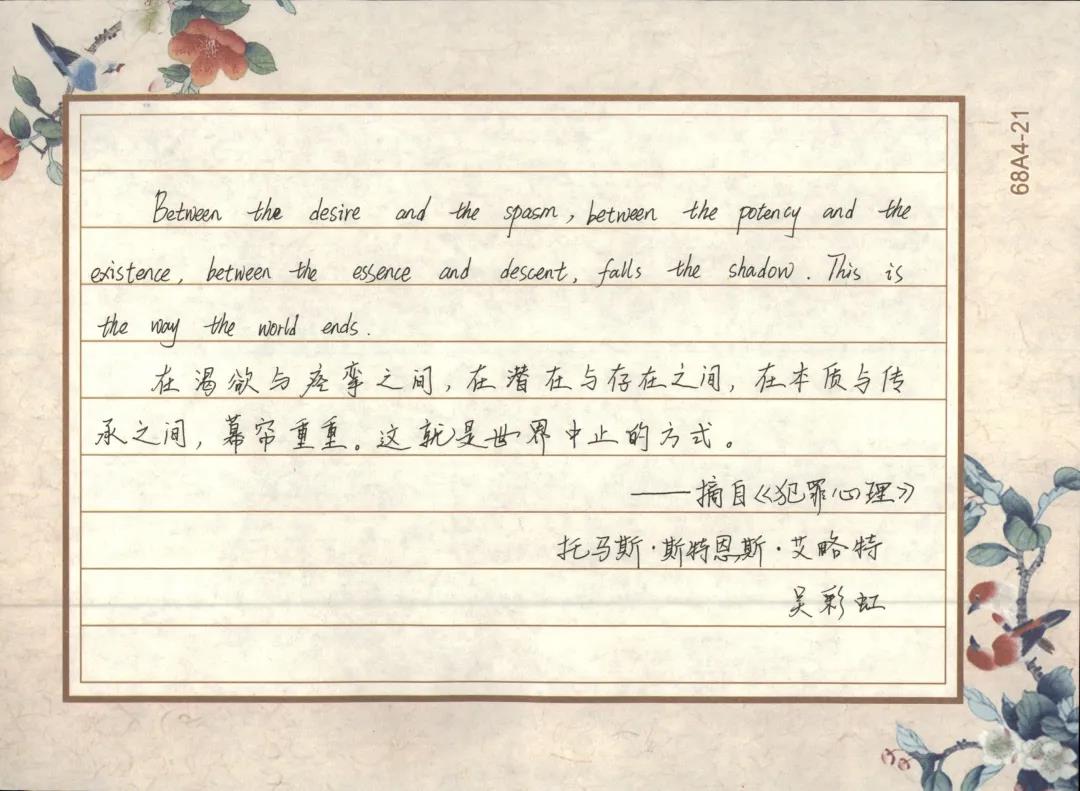 68A4-21
Between the desire and the spasm, between the potency and the
existence, between the essence and descent, falls the shadow. This is
the way the world ends.
在渴欲与痉挛之间,在潜在与存在之间,在本质与传
承之间,幕帘重重。这就是世界中止的方式。
——摘自《犯罪心理》
托马斯·斯特恩斯·艾略特
吴彩虹